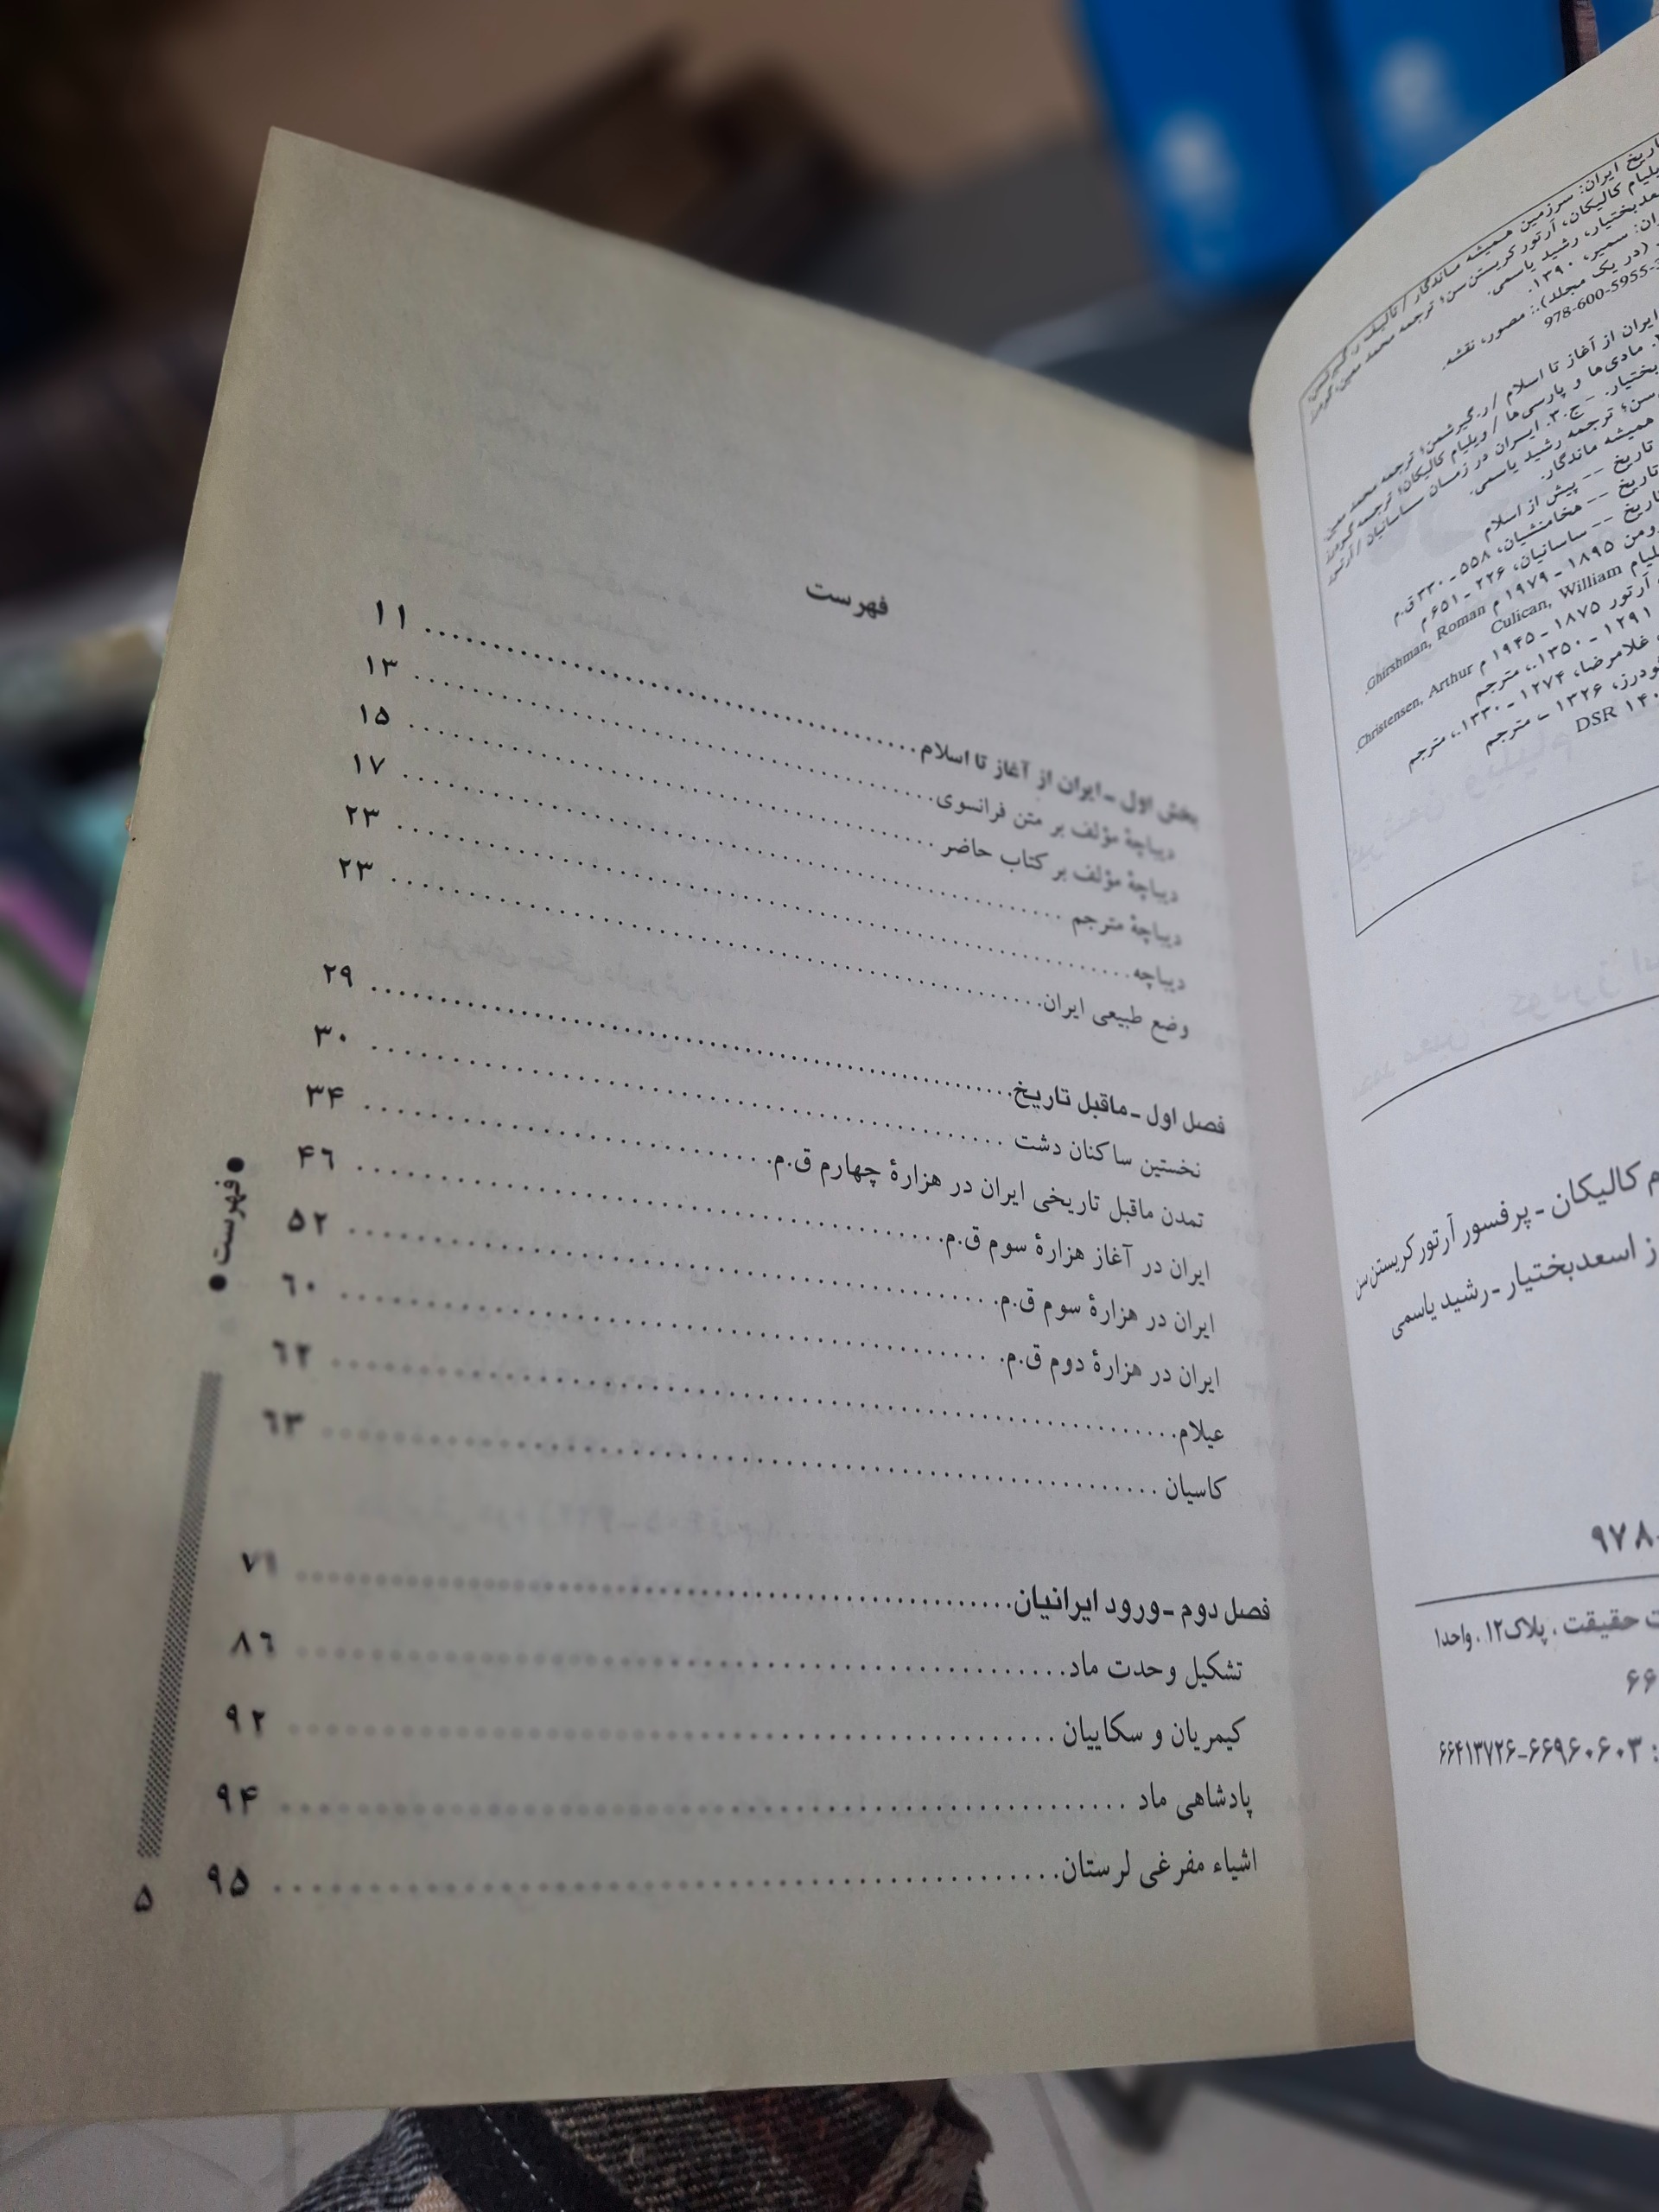 فهرست
بخش اول ـ ایران از آغاز تا اسلام ۱۱
دیباچهٔ مؤلف بر متن فرانسوی ۱۳
دیباچهٔ مؤلف بر کتاب حاضر ۱۵
دیباچهٔ مترجم ۱۷
دیباچه ۲۳
وضع طبیعی ایران ۲۳
فصل اول ـ ماقبل تاریخ ۲۹
نخستین ساکنان دشت ۳۰
تمدن ماقبل تاریخی ایران در هزارهٔ چهارم ق.م. ۳۴
ایران در آغاز هزارهٔ سوم ق.م. ۴۶
ایران در هزارهٔ سوم ق.م. ۵۲
ایران در هزارهٔ دوم ق.م. ۶۰
عیلام ۶۲
کاسیان ۶۳
فصل دوم ـ ورود ایرانیان ۷۶
تشکیل وحدت ماد ۸۶
کیمریان و سکاییان ۹۲
پادشاهی ماد ۹۴
اشیاء مفرغی لرستان ۹۵
● فهرست ●
۵
تاریخ ایران: سرزمین همیشه ماندگار / تألیف ر. گیرشمن،
ویلیام کالیکان، آرتور کریستن‌سن؛ ترجمه محمد معین، گودرز
اسعدبختیار، رشید یاسمی.
سمیر، ۱۳۹۰.
(در یک مجلد).: مصور، نقشه.
978-600-5955-3
ایران از آغاز تا اسلام / ر. گیرشمن؛ ترجمه محمد معین.
مادی‌ها و پارسی‌ها / ویلیام کالیکان؛ ترجمه گودرز
بختیار. - ج.۳. ایران در زمان ساسانیان / آرتور
سن؛ ترجمه رشید یاسمی.
همیشه ماندگار.
تاریخ -- پیش از اسلام
تاریخ -- هخامنشیان، ۵۵۸ ـ ۳۳۰ ق.م
تاریخ -- ساسانیان، ۲۲۶ ـ ۶۵۱ م
رومن ۱۸۹۵ ـ ۱۹۷۹ م Ghirshman, Roman
Culican, William
آرتور ۱۸۷۵ ـ ۱۹۴۵ م Christensen, Arthur
۱۲۹۱ ـ ۱۳۵۰.، مترجم
غلامرضا، ۱۲۷۴ ـ ۱۳۳۰.، مترجم
گودرز، ۱۳۲۶ ـ مترجم
DSR ۱۴۰
کالیکان ـ پرفسور آرتور کریستن‌سن
اسعدبختیار ـ رشید یاسمی
۹۷۸-
حقیقت . پلاک۱۲ . واحد۱
۶۶
: ۶۶۴۱۳۷۲۶-۶۶۹۶۰۶۰۳